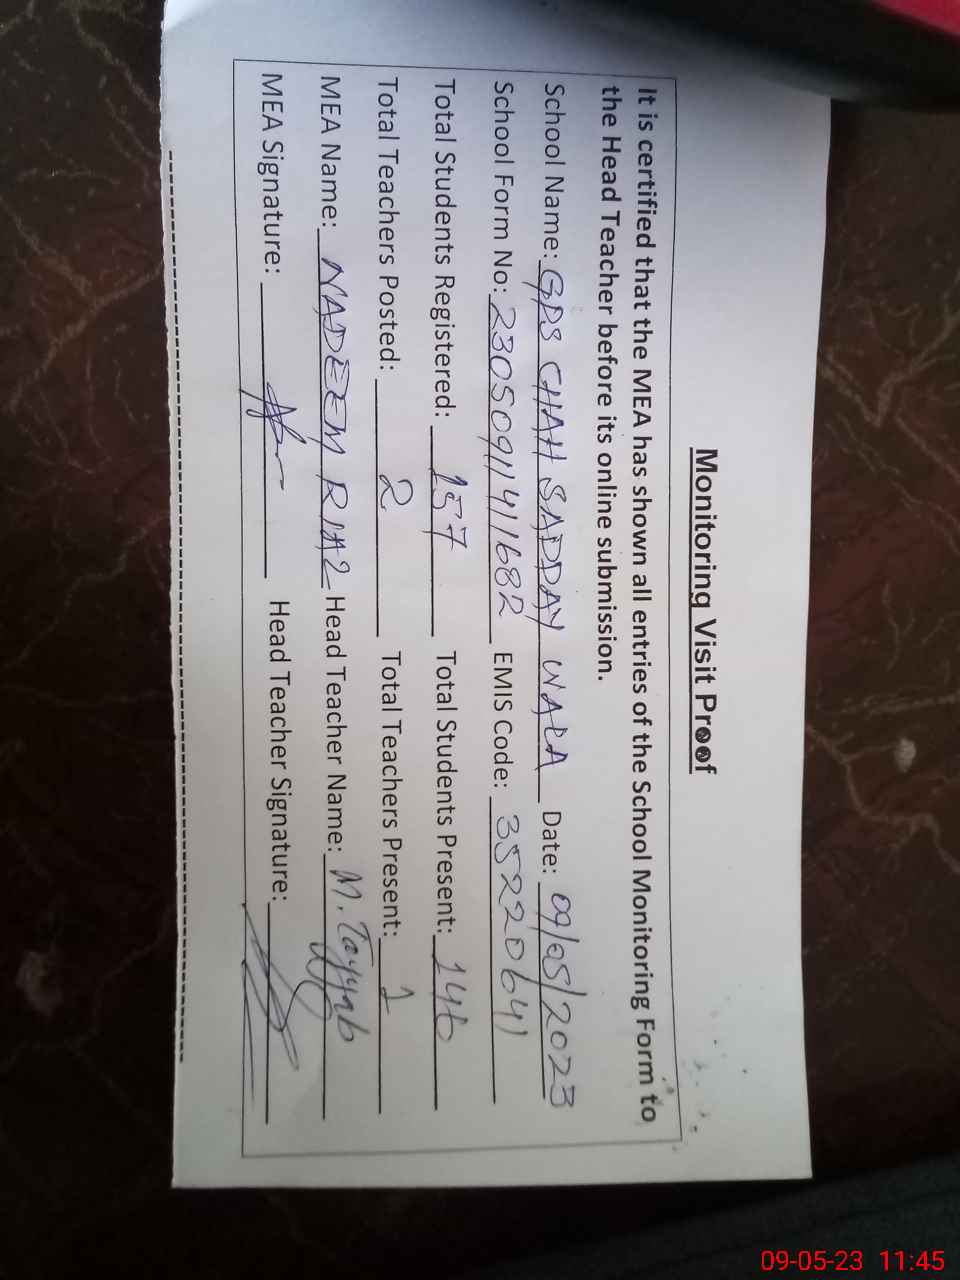 Monitoring Visit Proof
It is certified that the MEA has shown all entries of the School Monitoring Form to
the Head Teacher before its online submission.
School Name: GPS CHAH SADDAY WALA Date: 09/05/2023
School Form No: 23050911411682 EMIS Code: 35220641
Total Students Registered: 157 Total Students Present: 146
Total Teachers Posted: 2 Total Teachers Present: 1
MEA Name: NADEEM RIAZ Head Teacher Name: M. Tayyab
MEA Signature: Head Teacher Signature:
09-05-23 11:45